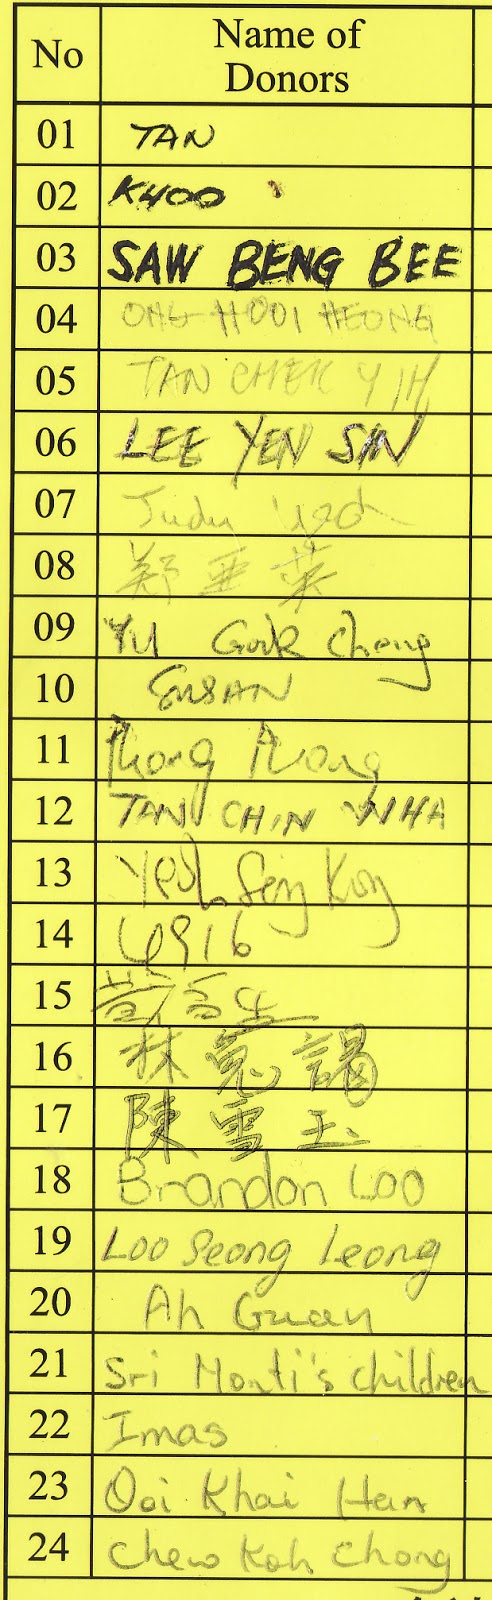 No Name of
Donors
01 TAN
02 KHOO
03 SAW BENG BEE
04 ONG HOOI HEONG
05 TAN CHEK YIH
06 LEE YEN SIN
07 Judy
08 鄭亜菜
09 Yu Gook Cheng
10 SUSAN
11 Phong Phong
12 TAN CHIN WHA
13 Yeoh Seng Kong
14 4916
15 黄
16 林
17 陳雪玉
18 Brandon Loo
19 Loo Seong Leong
20 Ah Guan
21 Sri Monti's children
22 Imas
23 Ooi Khai Han
24 Chew Kah Chong